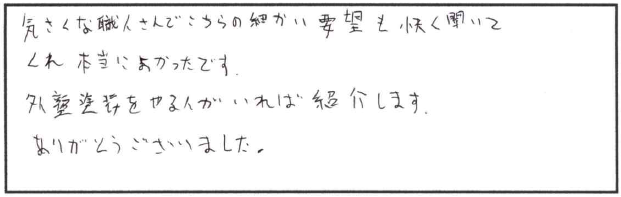 気さくな職人さんでこちらの細かい要望も快く聞いて
くれ本当によかったです.
外壁塗装をやる人がいれば紹介します.
ありがとうございました。